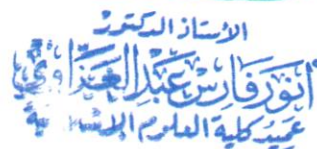 الأستاذ الدكتور
أنور فارس عبد العزاوي
عميد كلية العلوم الإسلامية